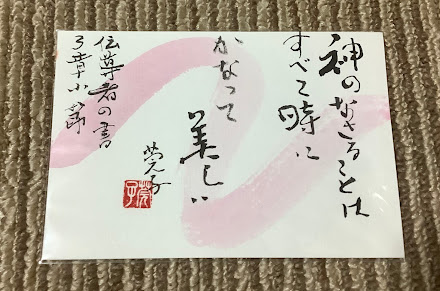 神のなさることは
すべて時に
かなって
美しい
伝道者の書
3章11節